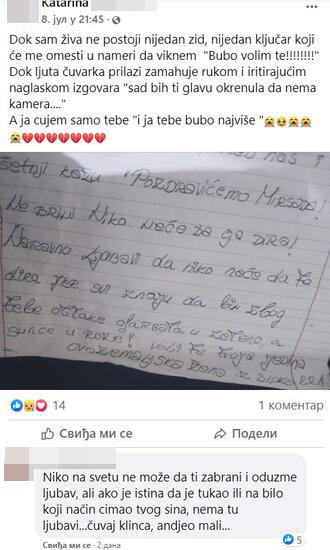 Katarina
8. јул у 21:45
Dok sam živa ne postoji nijedan zid, nijedan ključar koji
će me omesti u nameri da viknem "Bubo volim te!!!!!!!!"
Dok ljuta čuvarka prilazi zamahuje rukom i iritirajućim
naglaskom izgovara "sad bih ti glavu okrenula da nema
kamera...."
A ja cujem samo tebe "i ja tebe bubo najviše "😭😢😭😭
😭💔💔💔💔💔💔💔
šetnji kažu "POZDRAVIĆEMO
Ne brini Niko neće da ga dira!
Naravno ljubavi da niko neće da te
dira jer svi znaju da bih zbog
tebe oblake ofarbala u zeleno, a
sunce u roze! voli te tvoja jedina
ovozemaljska žena iz
14
1 коментар
Свиђа ми се
Подели
Niko na svetu ne može da ti zabrani i oduzme
ljubav, ali ako je istina da je tukao ili na bilo
koji način cimao tvog sina, nema tu
ljubavi...čuvaj klinca, andjeo mali...
Свиђа ми се 2 дана
5